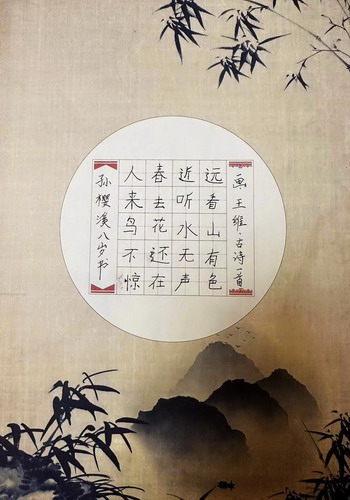 画 王维·古诗一首
远看山有色
近听水无声
春去花还在
人来鸟不惊
孙樱溪八岁书